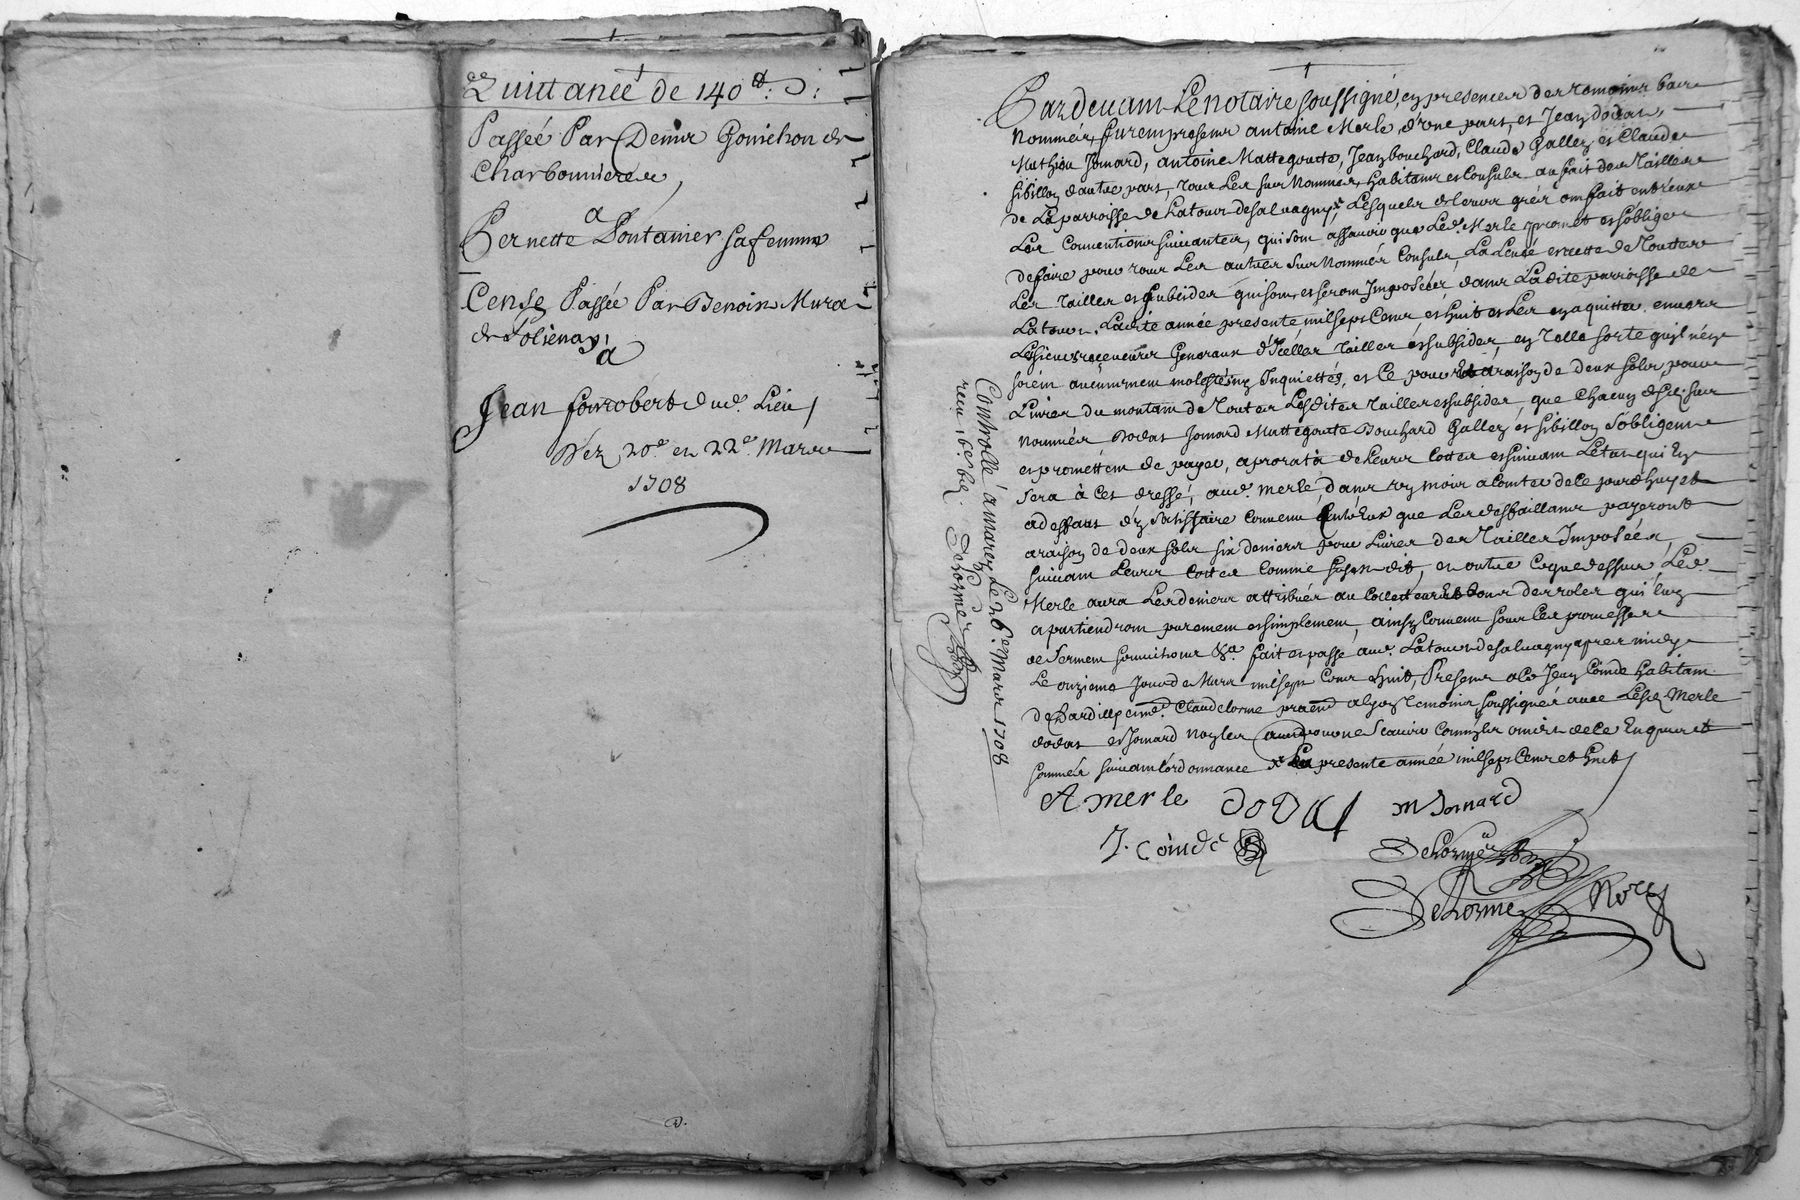 Quittance de 140 ₶:
Passée Par Denis Gonichon de
Charbonnieres
a
Pernette Pontanier sa femme
Cense Passée Par Benoist Mura
de Polienay
a
Jean fonrobert dud. Lieu
Dez 20e et 22e Mars
1708
Pardevant Le notaire soussigné, et presences des temoins bas
nommés furent presens antoine Merle d'une part, et Jean dodat,
Mathieu Jomard, antoine Mattegoutte, Jean bouchard, Claude Galley et Claude
sibillon d'autre part, tous Les sus Nommés habitans et Consuls au fait des Tailles
de La parroisse de La tour de salvagny, Lesquels de leurs grés ont fait entr'eux
Les Conventions suivantes, qui sont assavoir que Led. Merle promet et s'oblige
de faire pour tous Les autres sus Nommés Consuls, La Levée et recette de Toutes
Les tailles et subsides qui sont et seront Imposées dans La dite parroisse de
Latour, Ladite année presente mil sept Cens et huit et Les en aquitter envers
Les sieurs receveurs Generaux d'Icelles tailles et subsides, en telle sorte qu'ils n'en
soient aucunement molestés ny Inquiettés, et Ce pour et a raison de deux sols pour
Livres du montant de Toutes Lesdites tailles et subsides, que Chacun desd. sus
nommés Dodat Jomard Mattegoutte Bouchard Galley et sibillon s'obligent
et promettent de payer, a prorata de Leurs Cottes et suivant L'etat qui En
sera à Ces dressé, aud. Merle, dans un mois a Comter de Ce jourdhuy et
a deffaut d'y satisfaire Convenu Entr'Eux que Les deffaillans payeront
a raison de deux sols six deniers pour Livres des Tailles Imposées,
suivant Leurs Cottes Comme sus est dit, en outre Ce que dessus, Led.
Merle aura Les deniers attribués au Collecteur des roles qui luy
apartiendront purement et simplement, ainsy Convenu sous Les promesses
de serment soumissions &a. fait et passé aud. Latour de salvagny apres midy
Le onzieme jour de Mars mil sept Cens huit, Presens a Ce Jean Coinde habitant
de Dardilly et me. Claude Lorme praticien temoins soussignés avec Lesd. Merle
dodat et Jomard non Les autres pour ne scavoir comme ils ont dit de Ce Enquis et
sommés suivant l'ordonnance x La presente année mil sept Cens et huit
A merle dodat m Jomard
J. Coinde
Delorme
Delorme Nore
Controllé a marcy Le 26e Mars 1708
receu
Delorme